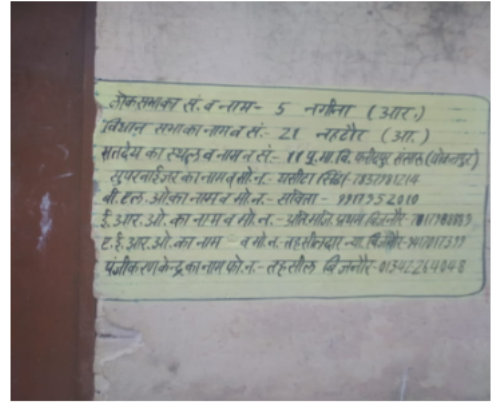 लोकसभा का सं. व नाम- 5 नगीना (आर.)
विधान सभा का नाम व सं.- 21 नहटौर (आ.)
मतदेय का स्थल व नाम न सं- 11 पू.मा.वि.
सुपरवाईजर का नाम व मो.न.- घसीटा सिंह- 7837781214
बी.एल.ओ का नाम व मो.न.- सविता - 9917952010
ई.आर.ओ. का नाम व मो.न.- प्रथम बिजनौर-
ए.ई.आर.ओ. का नाम व मो.न. तहसीलदार न्या. बिजनौर-
पंजीकरण केन्द्र का नाम फो.न.- तहसील बिजनौर-01342264048